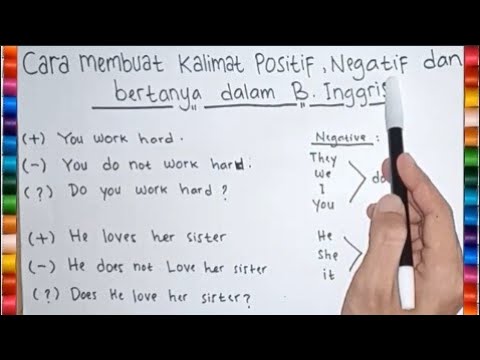 Cara membuat Kalimat Positif, Negatif dan
bertanya dalam B. Inggris
(+) You work hard.
(-) You do not work hard.
(?) Do you work hard?
(+) He loves her sister
(-) He does not Love her sister
(?) Does He love her sister?
Negative :
They
We
I
You
do
He
She
it